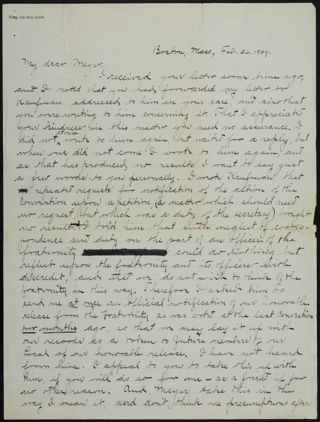 Boston, Mass, Feb. 26, 1909.
My dear Meyer,
I received your letter some time ago,
and I noted that you had forwarded my letter to
Kaufman addressed to him in your care, and also that
you were writing to him concerning it. That I appreciate
your kindness in this matter you need no assurance. I
did not at once write to him again but waited for a reply, but
when one did not come I wrote to him again, and
as that has produced no results I want to say just
a few words to you personally. I wrote Kaufman that
repeated requests for notification of the action of the
Convention upon a petition (a matter which should need
no request but which was a duty of the secretary) brought
no results. I told him that such neglect of corres-
pondence and duty on the part of an officer of the
fraternity could do nothing but
reflect upon the fraternity and its officers with
discredit, and that we do not wish to think of the
fraternity in this way. Therefore I asked him to
send me at once an official notification of our honorable
release from the fraternity as was voted at the last Convention
two months ago, so that we may lay it up with
our records as a token to future members of our
local of our honorable release. I have not heard
from him. I appeal to you to take this up with
him, if you will do so for me - as a friend if for
no other reason. And, Meyer take this in the
way I mean it, and don't think me presumptuous after